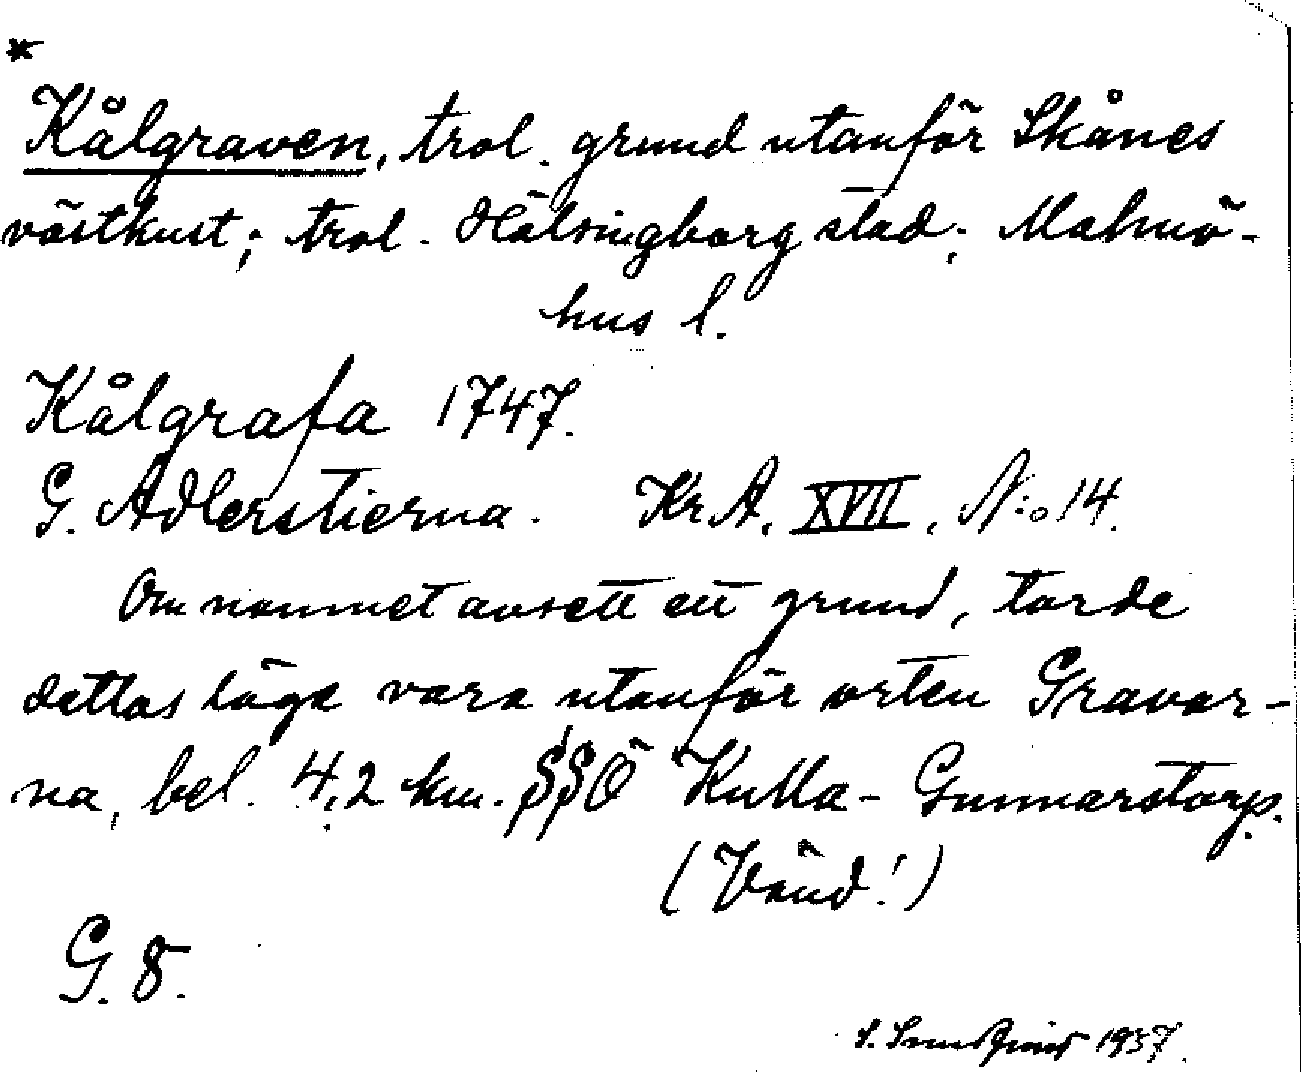 *
Kålgraven, trol. grund utanför Skånes
västkust; trol. Hälsingborg stad; Malmö-
hus l.
Kålgrafa 1747.
G. Adlerstierna. Kr.A. XVII, N:o 14.
Om namnet avsett ett grund, torde
dettas läge vara utanför orten Gravar-
na, bel. 4,2 km. SSÖ Kulla-Gunnarstorp.
(Vänd!)
G. 8.
S. 1937.